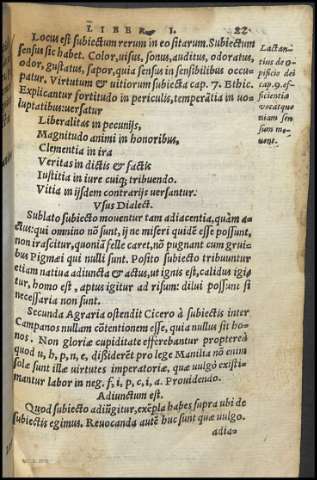 LIBER I. 22
Locus est subiectum rerum in eo sitarum. Subiectum
sensus sic habet. Color, uisus, sonus, auditus, odoratus,
odor, gustatus, sapor, quia sensus in sensibilibus occu
patur. Virtutum & uitiorum subiecta cap. 7. Ethic.
Explicantur fortitudo in periculis, temperãtia in uo
luptatibus: uersatur
Liberalitas in pecunijs,
Magnitudo animi in honoribus,
Clementia in ira
Veritas in dictis & factis
Iustitia in iure cuiq; tribuendo.
Vitia in ijsdem contrarijs uersantur.
Vsus Dialect.
Sublato subiecto mouentur tam adiacentia, quàm a-
ctus: qui omnino nõ sunt, ij ne miseri quidẽ esse possunt,
non irascitur, quoniã felle caret, nõ pugnant cum gruis
bus Pigmæi qui nulli sunt. Posito subiecto tribuuntur
etiam natiua adiuncta & actus, ut ignis est, calidus igi
tur, homo est, aptus igitur ad risum: dilui possunt si
necessaria non sunt.
Secunda Agraria ostendit Cicero à subiectis inter
Campanos nullam cõtentionem esse, quia nullus sit ho-
nos. Non gloriæ cupiditate efferebantur propterea
quod u, h, p, n, e, disiderẽt pro lege Manilia nõ enim
sola sunt illæ uirtutes imperatoriæ, quæ uulgò existi-
mantur labor in neg. f, i, p, c, i, a. Prouidendo.
Adiunctum est.
Quod subiecto adiũgitur, exẽpla habes supra ubi de
subiectis egimus. Reuocanda autẽ huc sunt quæ uulgo.
adia-
Lactan-
tius de o-
pificio dei
cap. 9. ef-
ficientia
uocatque
niam sen
sum mo-
uent.